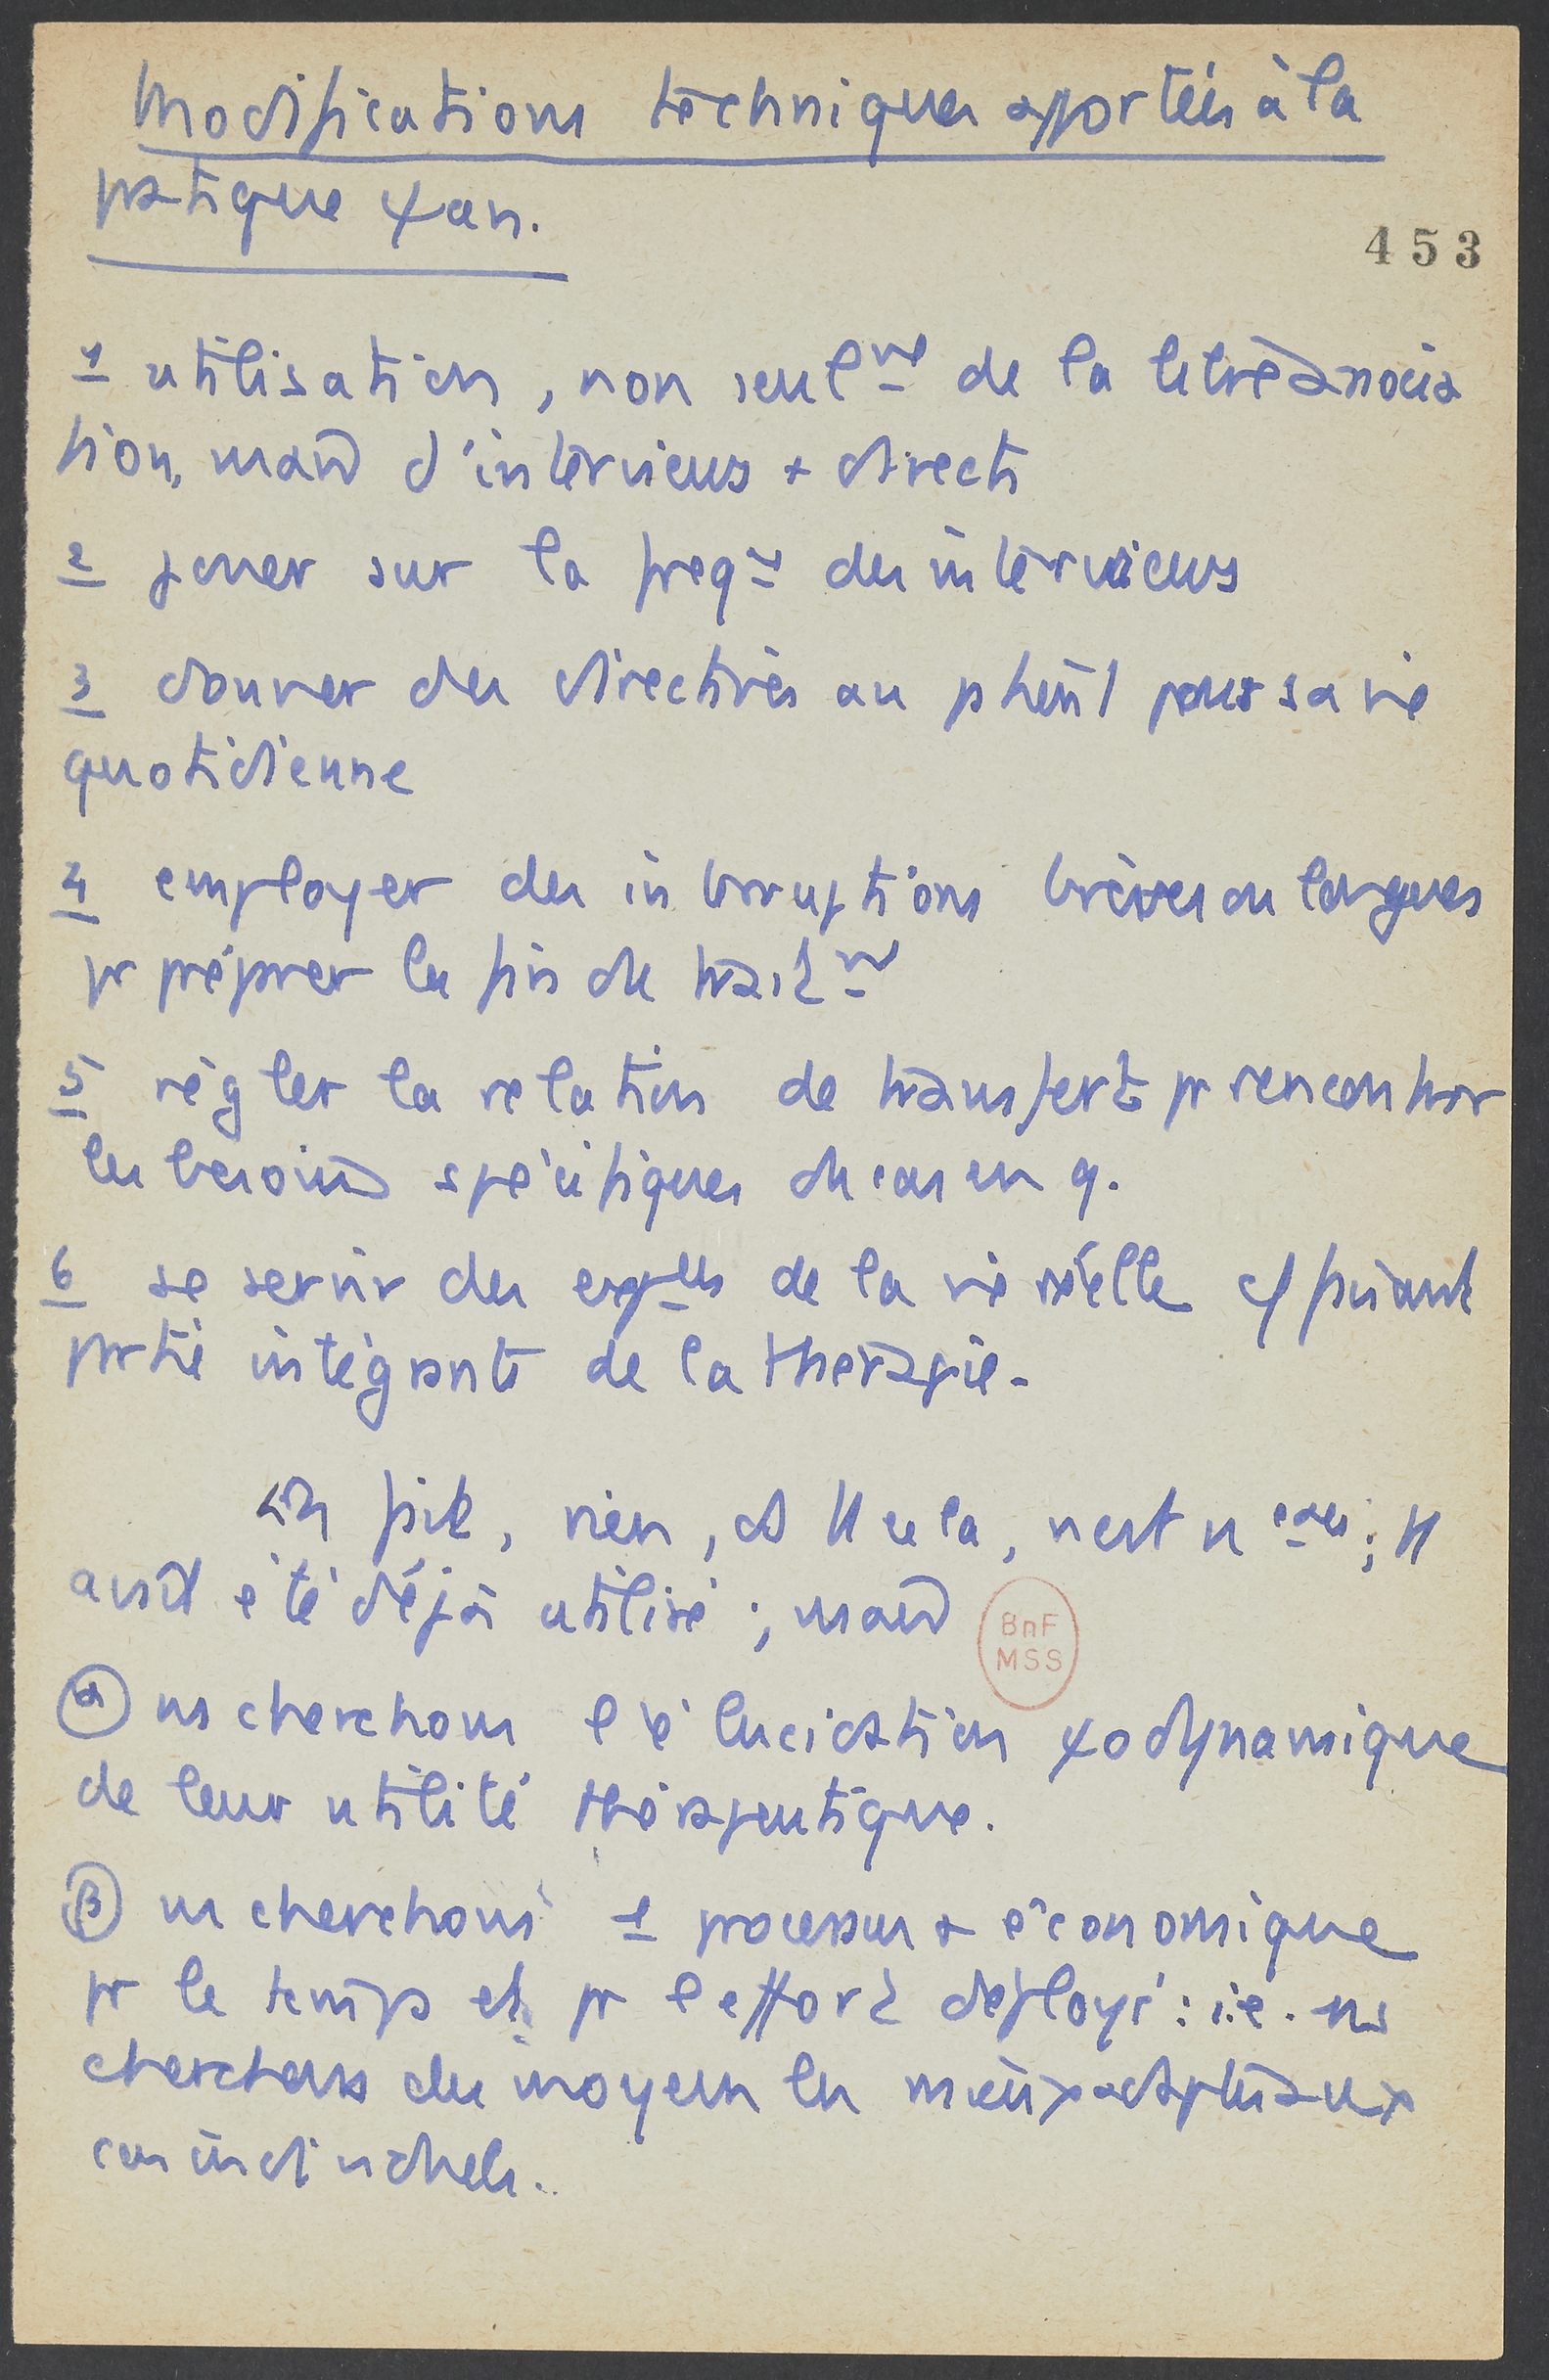 Modifications techniques apportées à la
pratique ψan.
453
1 utilisation, non seulmt de la libre associa
tion, mais d'interviews + directs
2 jouer sur la freqce des interviews
3 donner des directives au patient pour sa vie
quotidienne
4 employer des interruptions brèves ou longues
pr préparer la fin du traitmt
5 régler la relation de transfert pr rencontrer
les besoins spécifiques du cas en q.
6 se servir des expces de la vie réelle c/ faisant
partie intégrante de la therapie.
En fait, rien, ds tt cela, n'est n ; tt
avait été déjà utilisé ; mais
BnF
MSS
α ns cherchons l'élucidation ψodynamique
de leur utilité thérapeutique.
β ns cherchons 1 processus + économique
pr le temps et pr l'effort déployé : i.e. ns
cherchons des moyens les mieux adaptés aux
cas individuels.